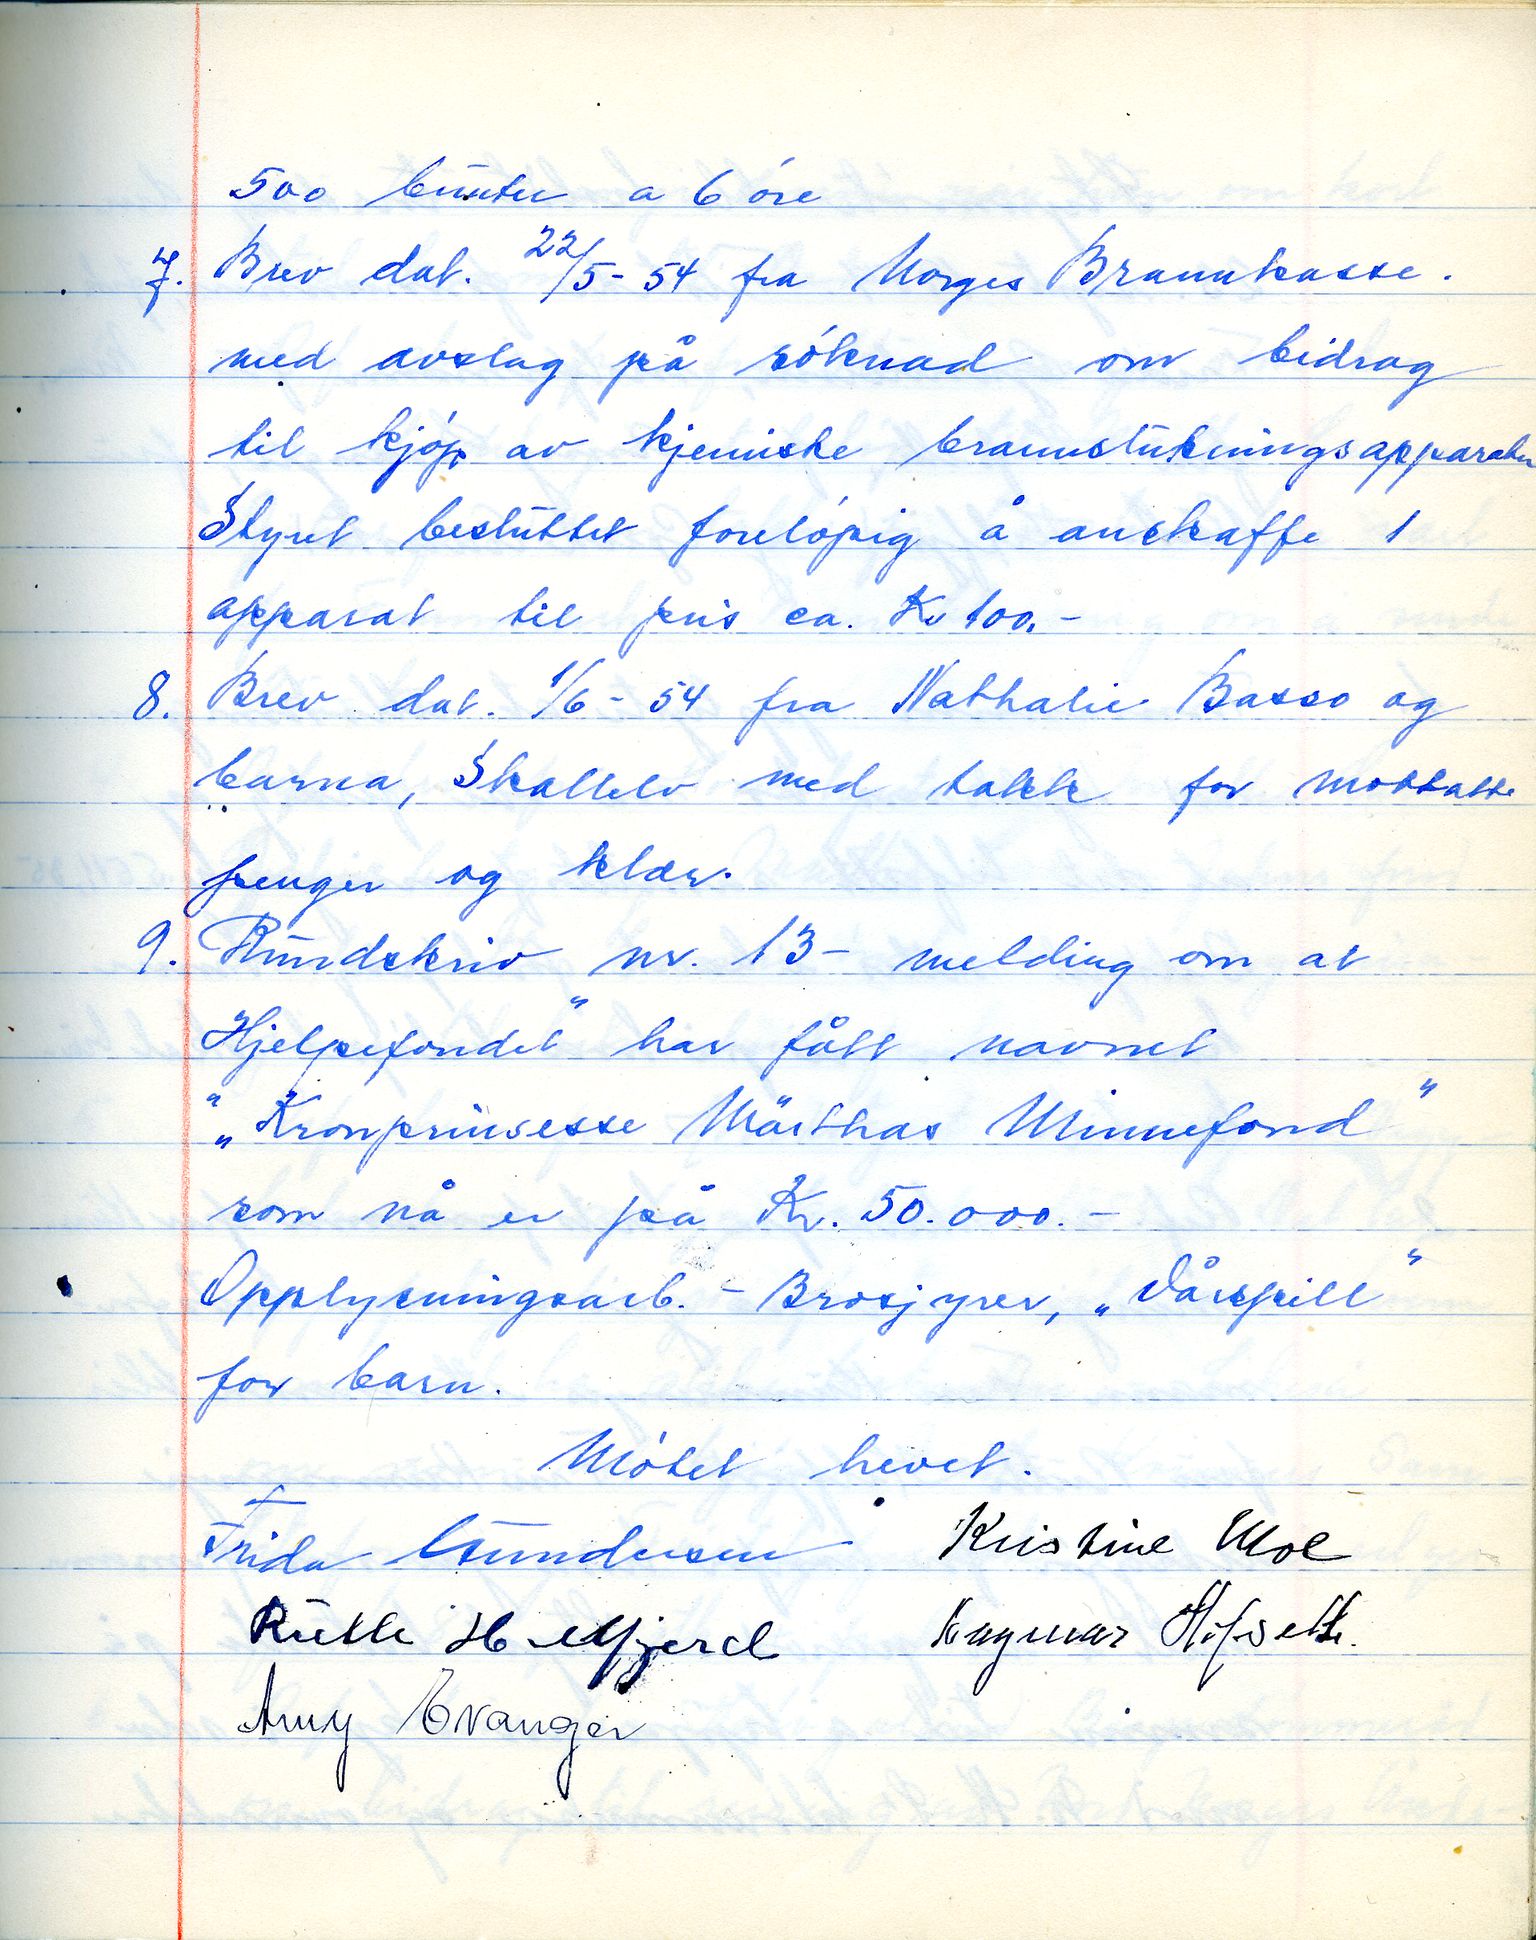 500 bunter a 6 öre
7. Brev dat. 22/5-54 fra Norges Brannkasse.
med avslag på söknad om bidrag
til kjöp av kjemiske brannslukningsapparater
Styret besluttet forelöpig å anskaffe 1
apparat til pris ca. Kr 100.-
8. Brev dat. 1/6-54 fra Nathalie Basso og
barna, Skallelv med takk for mottatte
penger og klær.
9. Rundskriv nr. 13- melding om at
Hjelpefondet" har fått navnet
"„Kronprinsesse Märthas Minnefond"
som nå er på Kr. 50.000.-
Opplysningsarb. - Brosjyrer, „Vårspill"
for barn.
Mötet hevet.
Frida Gundersen Kristine Moe
Ruth H. Dagmar
Amy Evanger